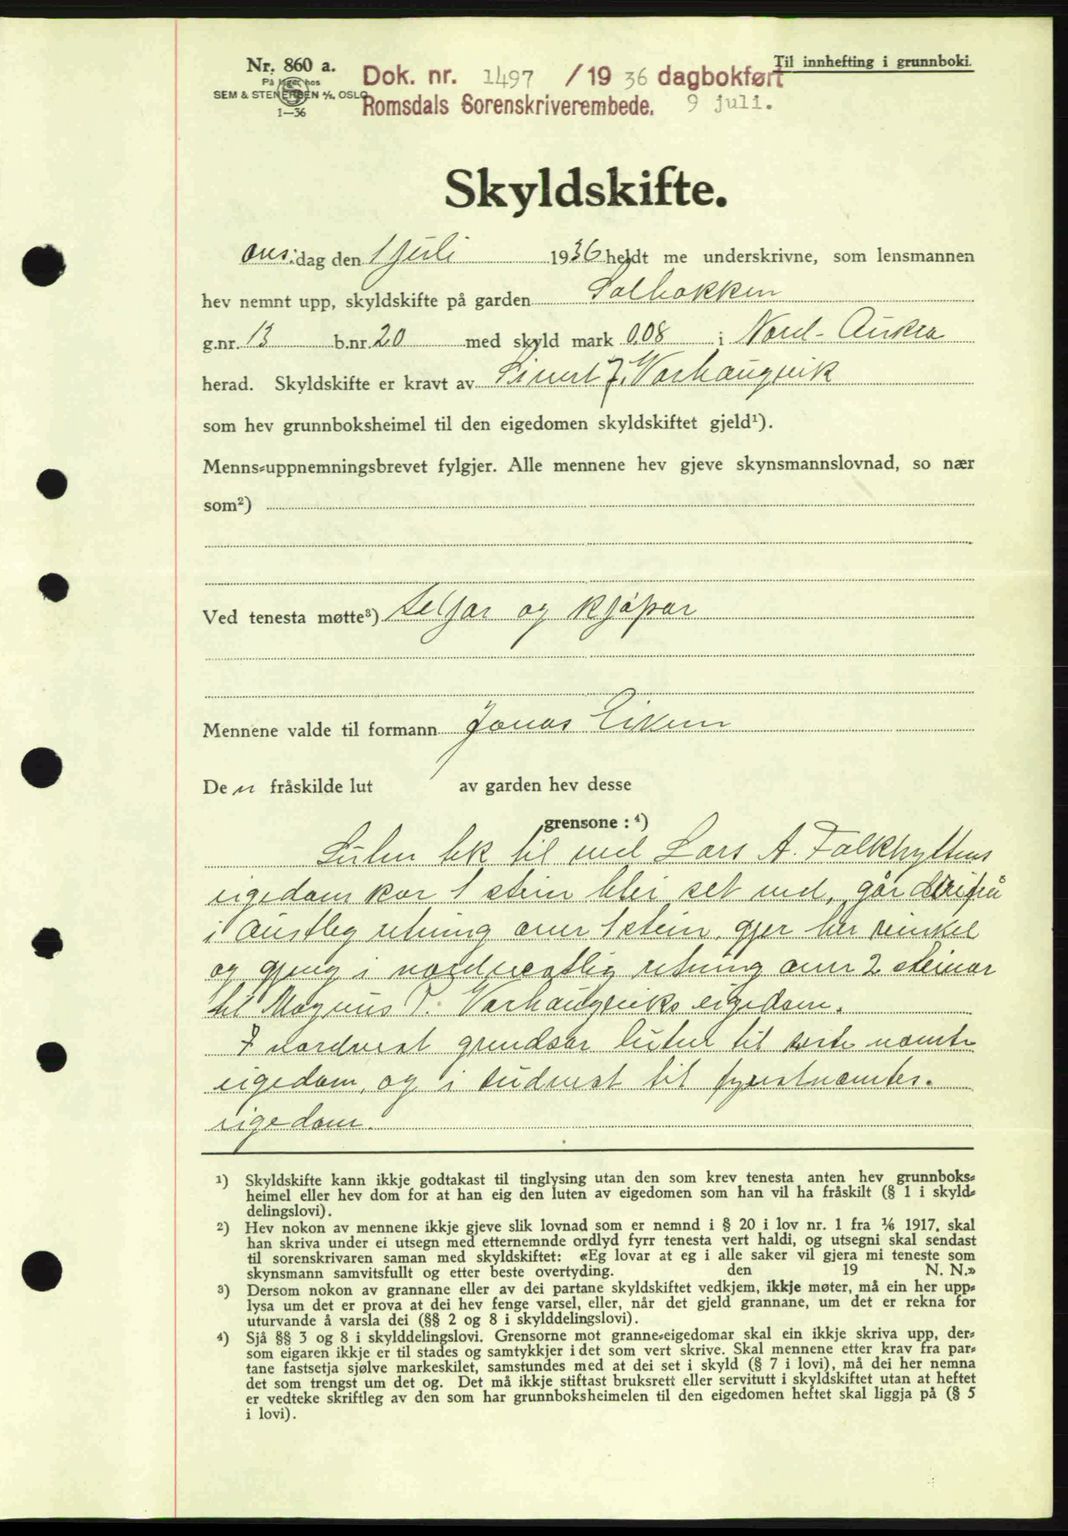 Nr. 860 a.
På lager hos
SEM & STENERSEN A/S, OSLO
1—36
Til innhefting i grunnboki.
Dok. nr. 1497 /19 36 dagbokført
Romsdals Sorenskriverembede. 9 juli.
Skyldskifte.
ons. dag den 1 juli 1936 heldt me underskrivne, som lensmannen
hev nemnt upp, skyldskifte på garden Solbakken
g.nr. 13 b.nr. 20 med skyld mark 0.08 i Nord-Aukra
herad. Skyldskifte er kravt av Sivert J. Varhaugvik
som hev grunnboksheimel til den eigedomen skyldskiftet gjeld¹).
Menns-uppnemningsbrevet fylgjer. Alle mennene hev gjeve skynsmannslovnad, so nær
som²)
Ved tenesta møtte³) seljar og kjøpar
Mennene valde til formann Jonas Eikrem
De n fråskilde lut av garden hev desse
grensone : ⁴)
Luten tek til ved Lars A. Falkhyttens
eigedom kor 1 stein blei set ned, går derifrå
i austleg retning over 1 stein, gjer her vinkel
og gjeng i nordvestlig retning over 2 steinar
til Magnus P. Varhaugviks eigedom.
I nordvest grendsar luten til siste nemnte
eigedom, og i sudvest til fyrstnemtes.
eigedom.
¹) Skyldskifte kann ikkje godtakast til tinglysing utan den som krev tenesta anten hev grunnboks-
heimel eller hev dom for at han eig den luten av eigedomen som han vil ha fråskilt (§ 1 i skyld-
delingslovi).
²) Hev nokon av mennene ikkje gjeve slik lovnad som er nemnd i § 20 i lov nr. 1 fra 1/6 1917, skal
han skriva under ei utsegn med etternemnde ordlyd fyrr tenesta vert haldi, og utsegni skal sendast
til sorenskrivaren saman med skyldskiftet: «Eg lovar at eg i alle saker vil gjera mi teneste som
skynsmann samvitsfullt og etter beste overtyding. den 19 N. N.»
³) Dersom nokon av grannane eller av dei partane skyldskiftet vedkjem, ikkje møter, må ein her upp-
lysa um det er prova at dei hev fenge varsel, eller, når det gjeld grannane, um det er rekna for
uturvande å varsla dei (§§ 2 og 8 i skylddelingslovi).
⁴) Sjå §§ 3 og 8 i skylddelingslovi. Grensorne mot granne-eigedomar skal ein ikkje skriva upp, der-
som eigaren ikkje er til stades og samtykkjer i det som vert skrive. Skal mennene etter krav fra par-
tane fastsetja sjølve markeskilet, samstundes med at dei set i skyld (§ 7 i lovi), må dei her nemna
det som trengst um det og. Det må ikkje stiftast bruksrett eller servitutt i skyldskiftet utan at heftet
er vedteke skriftleg av den som har grunnboksheimelen til den eigedomen heftet skal liggja på (§ 5
i lovi).